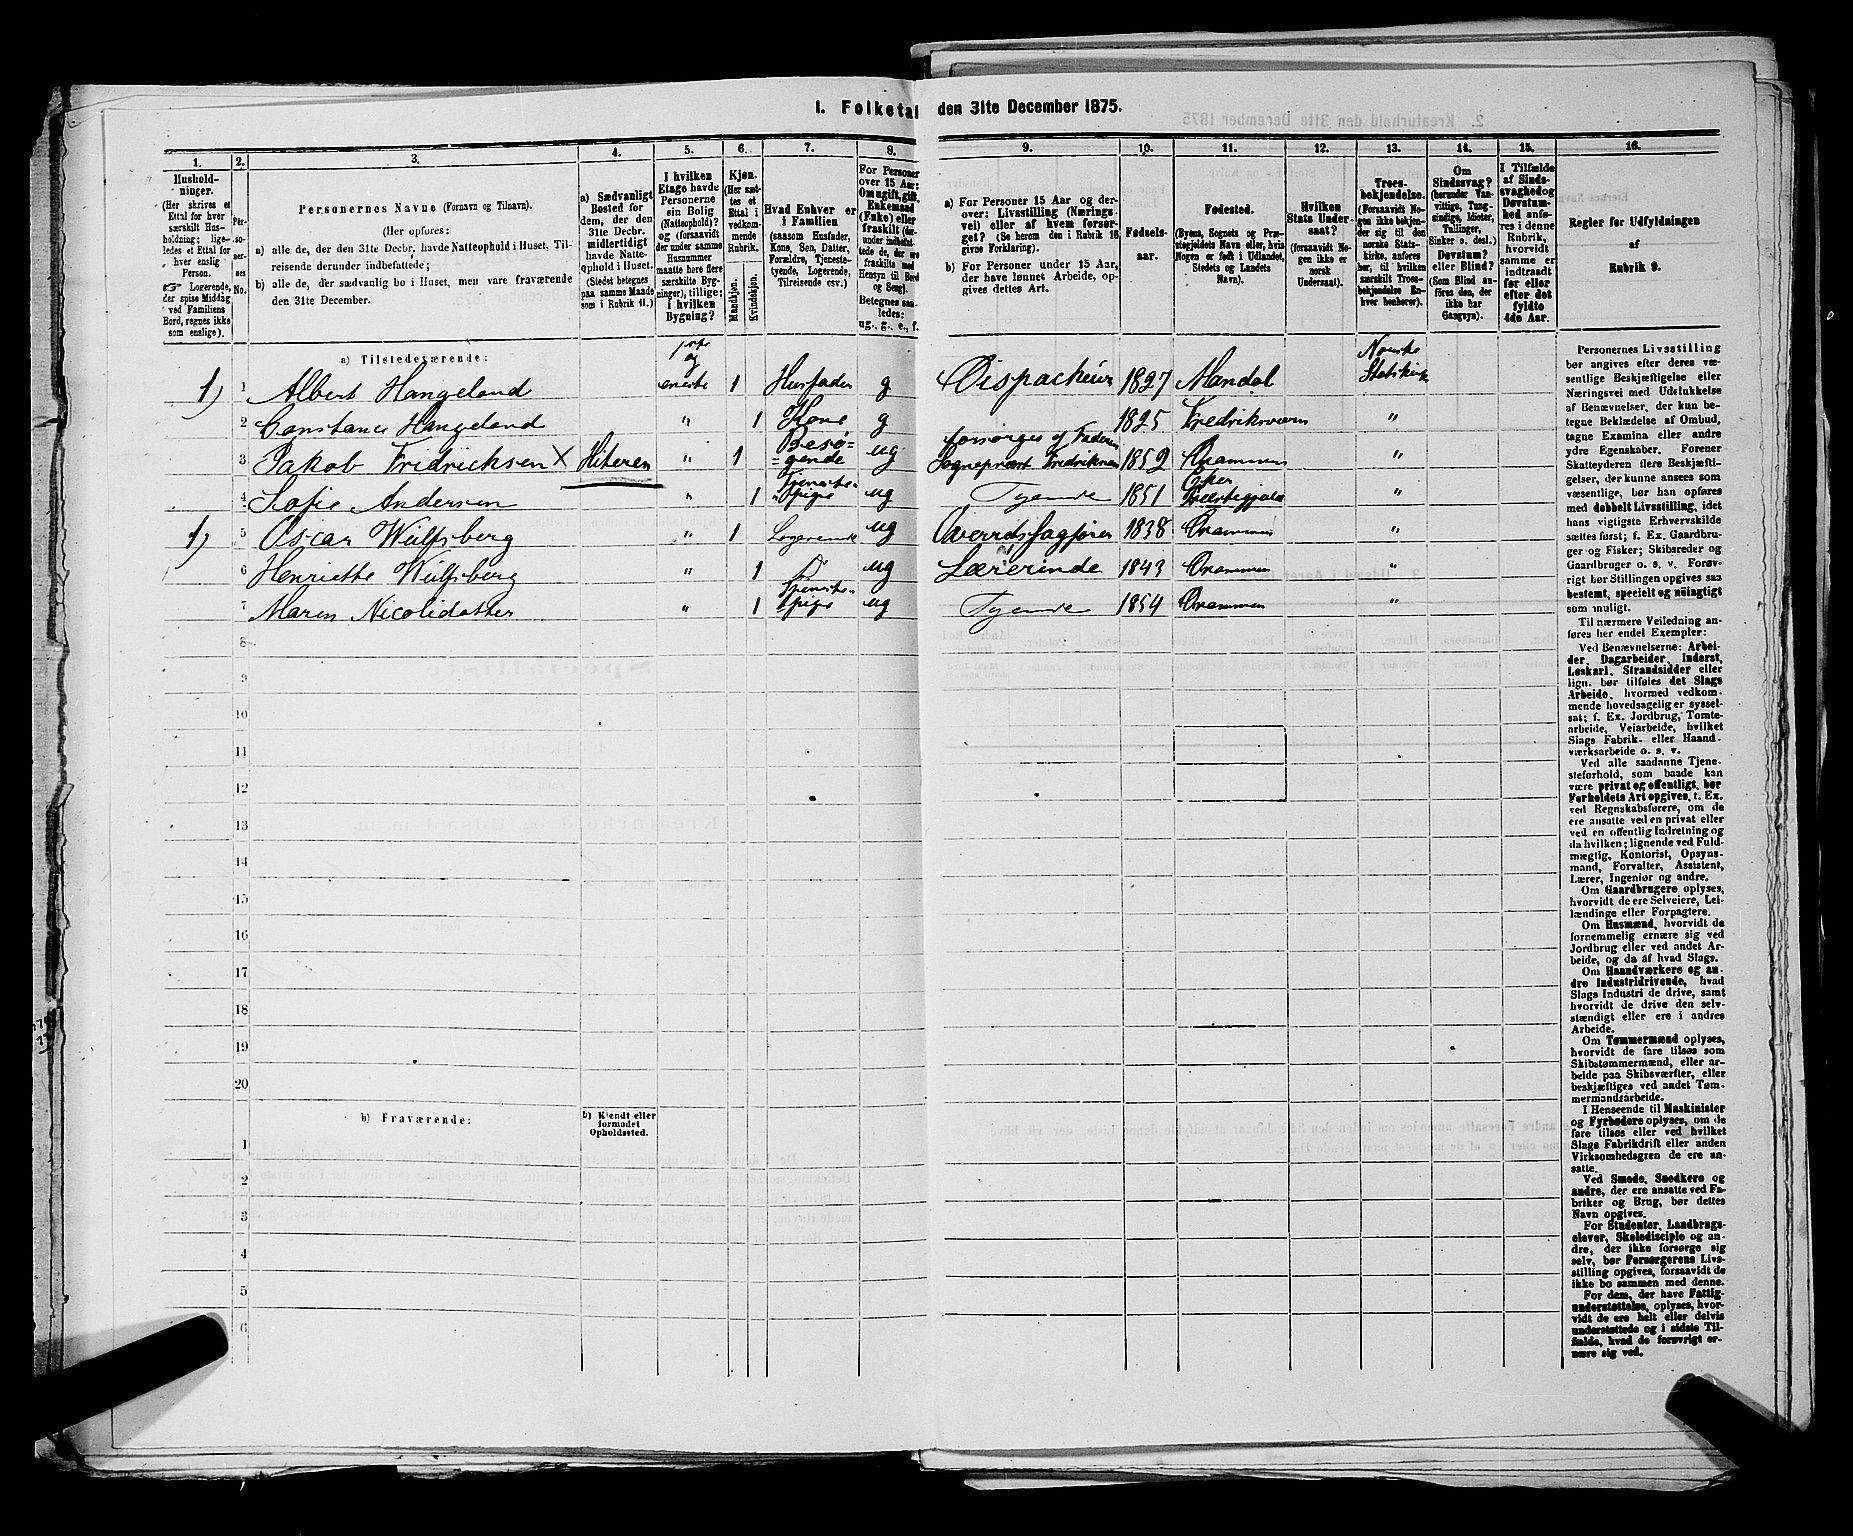 I. Folketal den 31te December 1875.
1.
2.
3.
4.
5.
6.
7.
8.
9.
10.
11.
12.
13.
14.
15.
16.
Hushold-
ninger.
(Her skrives et
Ettal for hver
særskilt Hus-
holdning; lige-
ledes et Ettal for
hver enslig
Person.
☞ Logerende,
der spise Middag
ved Familiens
Bord, regnes ikke
som enslige).
Per-
so-
ner-
nes
No.
Personernes Navne (Fornavn og Tilnavn).
(Her opføres:
a) alle de, der den 31te Decbr. havde Natteophold i Huset, Til-
reisende derunder indbefattede;
b) alle de, der sædvanlig bo i Huset, men vare fraværende
den 31te December.
a) Sædvanligt
Bosted for
dem, der den
31te Decbr.
midlertidigt
havde Natte-
ophold i Huset.
(Stedet betegnes
paa samme Maade
som i Rubrik 11.)
I hvilken
Etage havde
Personerne
sin Bolig
(Natteophold)?
og (forsaavidt
der under samme
Husnummer
maatte høre flere
særskilte Byg-
ninger), tillige:
i hvilken
Bygning?
Kjøn.
(Her sæt-
tes et
Ettal i
vedkom-
mende
Rubrik.
Mandkjøn.
Kvindekjøn.
Hvad Enhver er
i Familien
(saasom Husfader,
Kone, Søn, Datter,
Forældre, Tjeneste-
tyende, Logerende,
Tilreisende osv.)
For Personer
over 15 Aar:
Om ugift, gift,
Enkemand
(Enke) eller
fraskilt
Betegnes saa-
ledes:
ug., g., e., f.
a) For Personer 15 Aar og der-
over: Livsstilling (Nærings-
vei) eller af hvem forsør-
get? (Se herom den i Rubrik 16
givne Forklaring).
b) For Personer under 15 Aar,
der have lønnet Arbeide, op-
gives dettes Art.
Fødsels-
aar.
Fødested.
(Byens, Sognets og Præ-
stegjeldets Navn eller, hvis
Nogen er født i Udlandet,
Stedets og Landets
Navn).
Hvilken
Stats Under-
saat?
(forsaavidt No-
gen ikke er
norsk
Undersaat).
Troes-
bekjendelse.
(Forsaavidt No-
gen ikke bekjen-
der sig til den
norske Stats-
kirke, anføres
her, til hvilken
særskilt Troes-
bekjendelse En-
hver henhører).
Om
Sindssvag?
(herunder Van-
vittige, Tung-
sindige, Idioter,
Tullinger,
Sinker o. desl.)
Døvstum?
eller Blind?
(Som Blind an-
føres den, der
ikke har
Gangsyn).
I Tilfælde
af Sinds-
svaghed og
Døvstum-
hed anfø-
res i denne
Rubrik,
hvorvidt
samme er
indtraadt
før eller
efter det
fyldte
4de Aar.
Regler for Udfyldningen
af
Rubrik 9.
a) Tilstedeværende:
1) 1 Albert Hangeland 1ste og eneste 1 Husfader g Dispacheur 1827 Mandal Norske Statskirke
2 Constance Hangeland " 1 Kone g 1825 Fredriksværn "
3 Jakob Fridricksen X Hiteren " 1 Besø-gende ug Forsørges af Faderen Sognepræst Fredriksen 1852 Drammen "
4 Sofie Andersen " 1 Tjeneste-pige ug Tyende 1851 Eker Præstegjæld "
1) 5 Oscar Wulfsberg " 1 Logerende ug Overretssagfører 1838 Drammen "
6 Henriette Wulfsberg " 1 ug Lærerinde 1843 Drammen "
7 Maren Nicolidatter " 1 Tjeneste-pige ug Tyende 1854 Drammen "
8
9
10
11
12
13
14
15
16
17
18
19
20
b) Fraværende:
b) Kjendt eller
formodet
Opholdssted.
1
2
3
4
5
6
Personernes Livsstilling
bør angives efter deres væ-
sentlige Beskjæftigelse eller
Næringsvei med Udelukkelse
af Benævnelser, der kun be-
tegne Beklædelse af Ombud,
tagne Examina eller andre
ydre Egenskaber. Forener
Skatteyderen flere Beskjæfti-
gelser, der kunne ansees som
væsentlige, bør han opføres
med dobbelt Livsstilling, idet
hans vigtigste Erhvervskilde
sættes først; f. Ex. Gaardbru-
ger og Fisker; Skibsreder og
Gaardbruger o. s. v. Forøv-
rigt bør Stillingen opgives saa
bestemt, specielt og nøiagtigt
som muligt.
Til nærmere Veiledning an-
føres her endel Exempler:
Ved Benævnelserne: Arbei-
der, Dagarbeider, Inderst,
Løskarl, Strandsidder eller
lign. bør tilføies det Slags
Arbeide, hvormed vedkom-
mende hovedsagelig er syssel-
sat; f. Ex. Jordbrug, Tomte-
arbeide, Veiarbeide, hvilket
Slags Fabrik- eller Haand-
værksarbeide o. s. v.
Ved alle saadanne Tjene-
steforhold, som baade kan
være privat og offentligt, bør
Forholdets Art opgives, t. Ex.
ved Regnskabsførere, om de
ere ansatte ved en privat eller
ved en offentlig Indretning og
da hvilken; lignende ved Fuld-
mægtig, Kontorist, Opsyns-
mand, Forvalter, Assistent,
Lærer, Ingeniør og andre.
Om Gaardbrugere oplyses,
hvorvidt de ere Selveiere, Lei-
lændinge eller Forpagtere.
Om Husmænd, hvorvidt de
fornemmelig ernære sig ved
Jordbrug eller ved andet Ar-
beide, og da af hvad Slags.
Om Haandværkere og an-
dre Industridrivende, hvad
Slags Industri de drive, samt
hvorvidt de drive den selv-
stændigt eller ere i andres
Arbeide.
Om Tømmermænd oplyses,
hvorvidt de fare tilsøs som
Skibstømmermænd, eller ar-
beide paa Skibsværfter, eller
beskjæftiges ved andet Tøm-
mermandsarbeide.
I Henseende til Maskinister
og Fyrbødere oplyses, om de
fare tilsøs eller ved hvilket
Slags Fabrikdrift eller anden
Virksomhedsgren de ere an-
satte.
Ved Smede, Snedkere og
andre, der ere ansatte ved Fa-
briker og Brug, bør dettes
Navn opgives.
For Studenter, Landbrugs-
elever, Skoledisciple og an-
dre, der ikke forsørge sig
selv, bør Forsørgerens Livs-
stilling opgives, forsaavidt de
ikke bo sammen med denne.
For dem, der have Fattig-
understøttelse, oplyses, hvor-
vidt de ere helt eller delvis
understøttede og i sidste Til-
fælde, hvad de forøvrigt er-
nære sig ved.